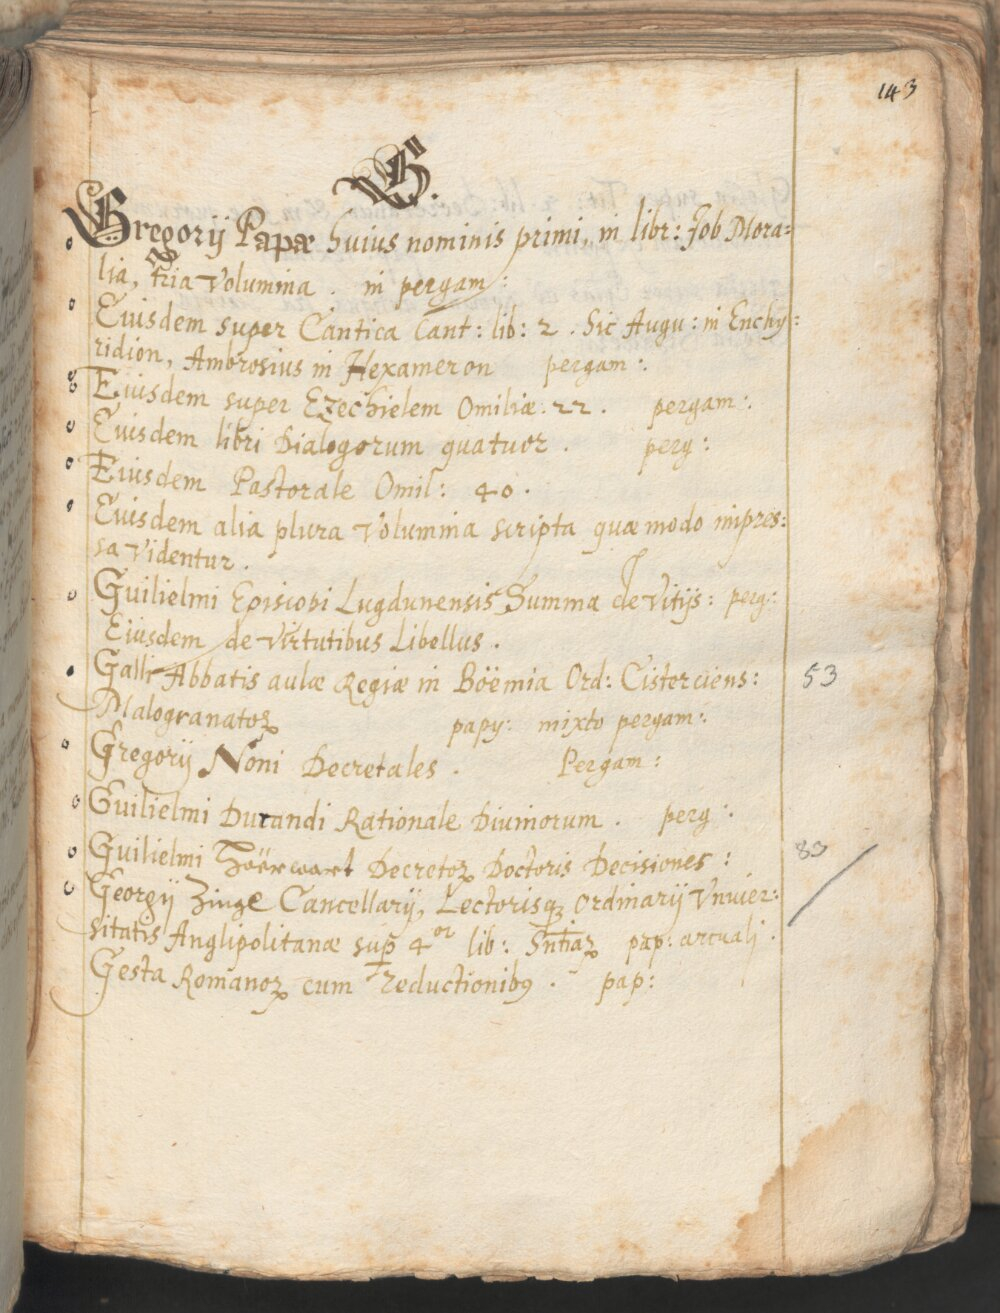 143
G.
Gregorij Papæ huius nominis primi, in libr: Job Mora=
lia, tria Volumina . in pergam:
Eiusdem super Cantica Cant: lib: 2 . Sic Augu: in Enchy=
ridion, Ambrosius in Hexameron pergam:
Eiusdem super Ezechielem Omiliæ . 22 . pergam:
Eiusdem libri Dialogorum quatuor . perg:
Eiusdem Pastorale Omil: 40 .
Eiusdem alia plura Volumina scripta quæ modo impres=
sa Videntur .
Guilielmi Episcopi Lugdunensis Summa de Vitijs: perg:
Eiusdem de Virtutibus Libellus .
Galli Abbatis aulæ Regiæ in Böëmia Ord: Cisterciens: 53
Malogranatoꝝ papy: mixto pergam:
Gregorij Noni Decretales . Pergam:
Guilielmi Durandi Rationale Diuinorum . perg:
Guilielmi Decretoꝝ Doctoris Decisiones: 83
Georgij Zinge Cancellarij, Lectorisqꝫ Ordinarij Vniuer=
sitatis Anglipolitanæ sup̄ 4or lib: Sn̄tiaꝝ pap: arcuali .
Gesta Romanoꝝ cum reductionibꝰ . pap: